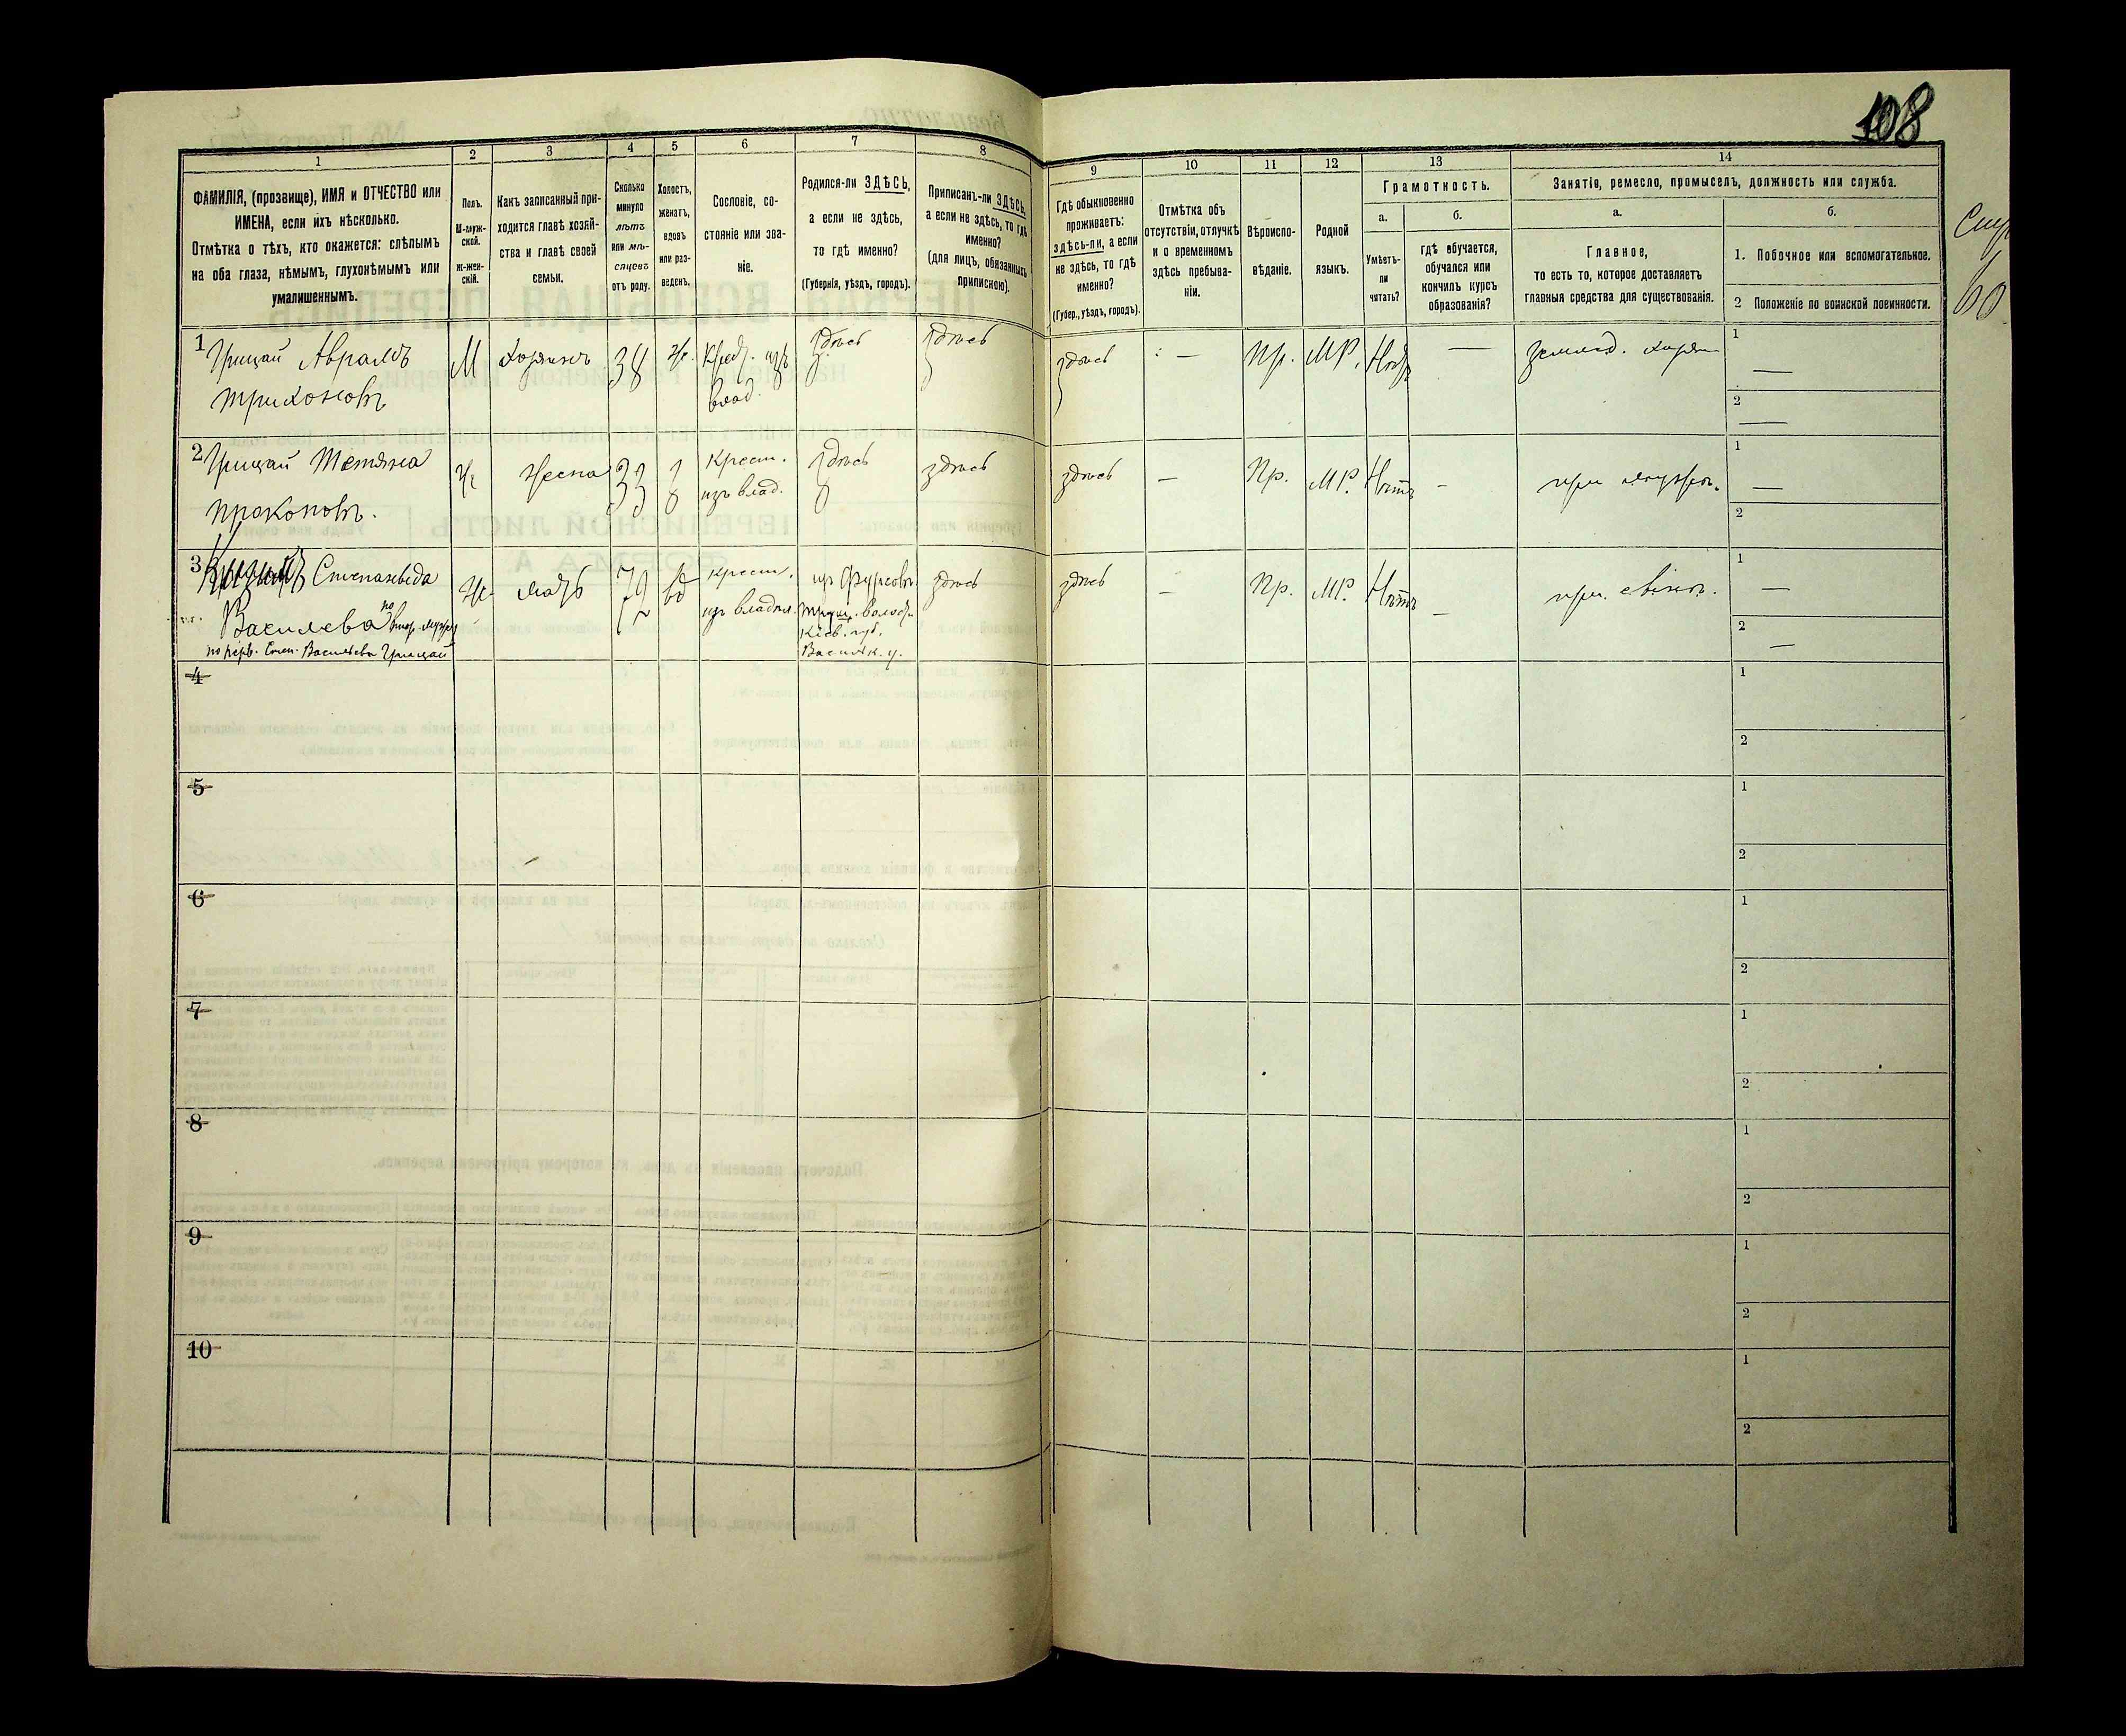 108
1
2
3
4
5
6
7
8
9
10
11
12
13
14
ФАМИЛІЯ, (прозвище), ИМЯ и ОТЧЕСТВО или
ИМЕНА, если ихъ нѣсколько.
Отмѣтка о тѣхъ, кто окажется: слѣпымъ
на оба глаза, нѣмымъ, глухонѣмымъ или
умалишеннымъ.
Полъ.
М-муж-
ской.
Ж-жен-
скій.
Какъ записанный при-
ходится главѣ хозяй-
ства и главѣ своей
семьи.
Сколько
минуло
лѣтъ
или мѣ-
сяцевъ
отъ роду.
Холостъ,
женатъ,
вдовъ
или раз-
веденъ.
Сословіе, со-
стояніе или зва-
ніе.
Родился-ли ЗДѢСЬ,
а если не здѣсь,
то гдѣ именно?
(Губернія, уѣздъ, городъ).
Приписанъ-ли ЗДѢСЬ,
а если не здѣсь, то гдѣ
именно?
(для лицъ, обязанныхъ
припискою).
Гдѣ обыкновенно
проживаетъ:
здѣсь-ли, а если
не здѣсь, то гдѣ
именно?
(Губер., уѣздъ, городъ).
Отмѣтка объ
отсутствіи, отлучкѣ
и о временномъ
здѣсь пребыва-
ніи.
Вѣроиспо-
вѣданіе.
Родной
языкъ.
Грамотность.
а.
Умѣетъ-
ли
читать?
б.
гдѣ обучается,
обучался или
кончилъ курсъ
образованія?
Занятіе, ремесло, промыселъ, должность или служба.
а.
Главное,
то есть то, которое доставляетъ
главныя средства для существованія.
б.
1. Побочное или вспомогательное.
2 Положеніе по воинской повинности.
1
Грицай Аврамъ
Трихоновъ
М
Хозяинъ
38
ж.
Крест. изъ
влад.
здѣсь
здѣсь
здѣсь
—
Пр.
МР.
Нѣтъ
—
землед. хозяин
1
—
2
—
2
Грицай Тетяна
Прокопов.
Ж
Жена
33
з
Крест.
изъ влад.
здѣсь
здѣсь
здѣсь
—
Пр.
МР.
Нѣтъ
-
при мужѣ.
1
—
2
3
Степанида
Василева по втор. мужу
по перв. Степ. Васильева Грицай
Ж
мать
79
вд
крест.
изъ владѣл.
изъ Фурсовъ
волост.
Кіев. губ.
Васильк. у.
здѣсь
здѣсь
-
Пр.
МР.
Нѣтъ
-
при сынѣ.
1
—
2
—
4
1
2
5
1
2
6
1
2
7
1
2
8
1
2
9
1
2
10
1
2